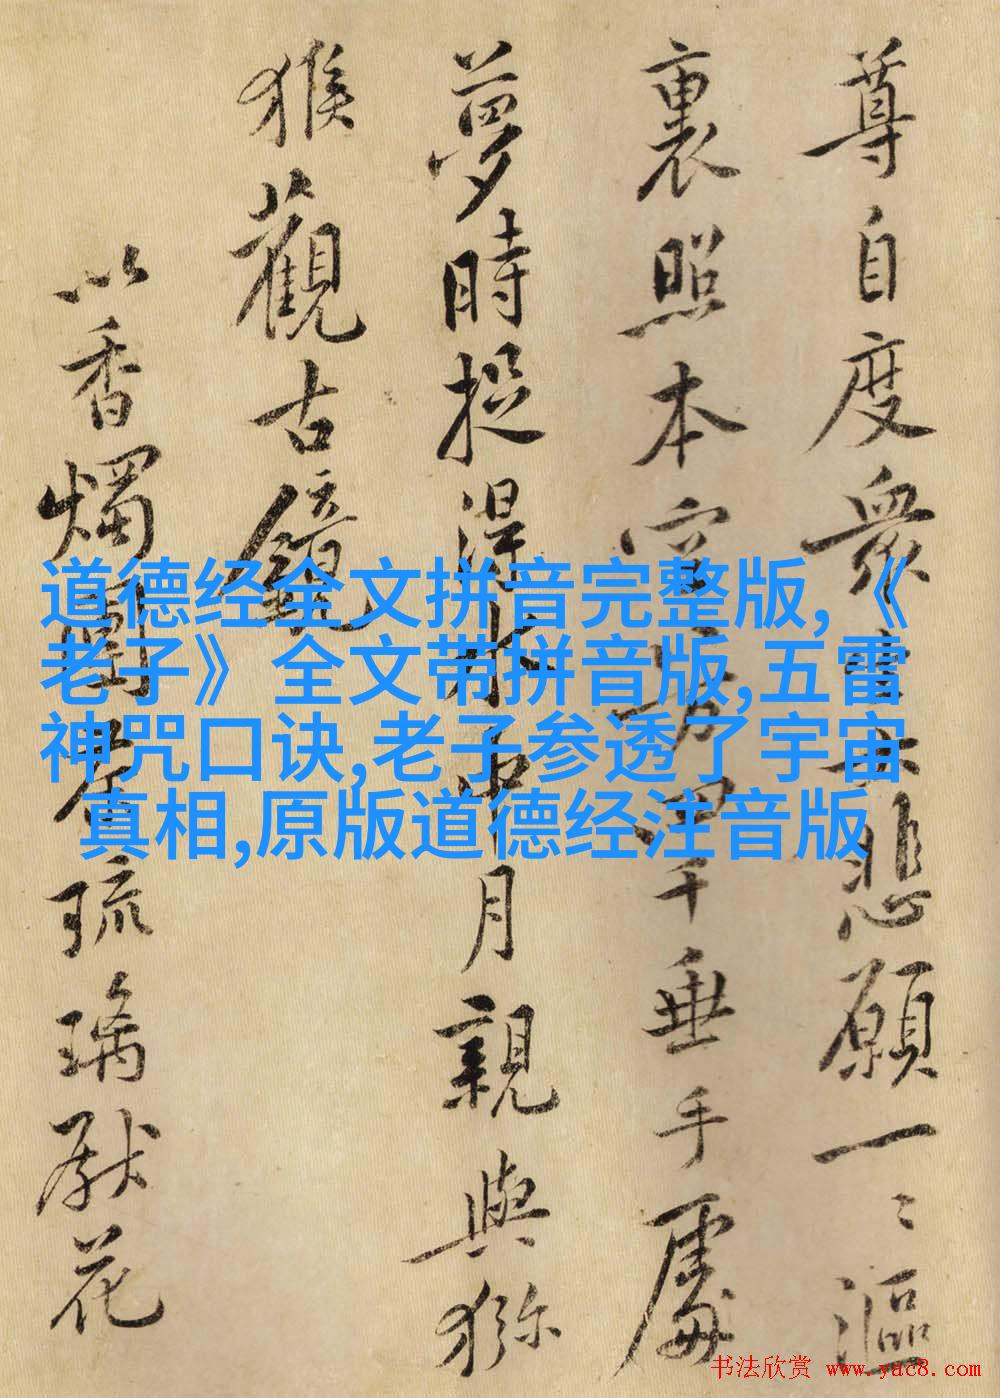 尊自度衆生大悲願一〻漚
裏照本空八万四千垂手處
夢時捉得水中月親與獼
猴觀古鏡
以香燭團茶琉璃獻花
道德经全文拼音完整版,《
老子》全文带拼音版,五雷
神咒口诀,老子参透了宇宙
真相,原版道德经注音版
书法欣赏 www.yac8.com